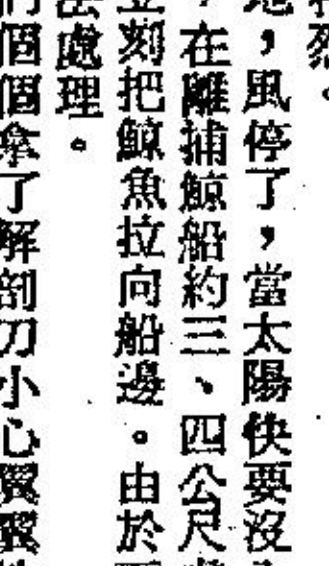 烈。
地，風停了，當太陽快要沒
，在離捕鯨船約三、四公尺
立刻把鯨魚拉向船邊。由於
法處理。
們個個拿了解剖刀小心翼翼